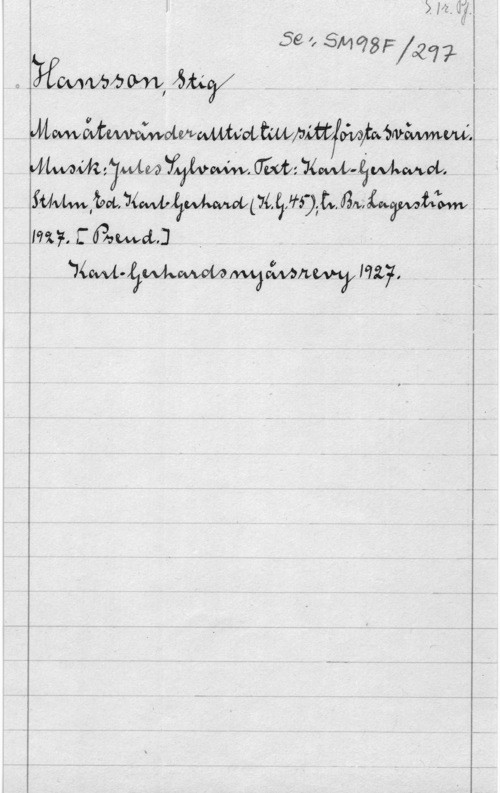 Se: SM98F/297
Hansson, Stig
Man återvänder alltid till sitt första svärmeri.
Musik: Jules Sylvain. Text: Karl-Gerhard.
Sthlm, Ed. Karl-Gerhard (K.G. 45), tr. Br. Lagerström
1927. [Pseud.]
Karl-Gerhards nyårsrevy 1927.